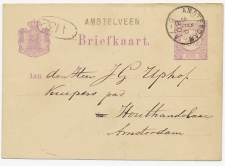 AMSTELVEEN
AMSTERDAM
Briefkaart.
aan den Heer J G Uphof
Kuipers pad
Houthandelaar
Amsterdam